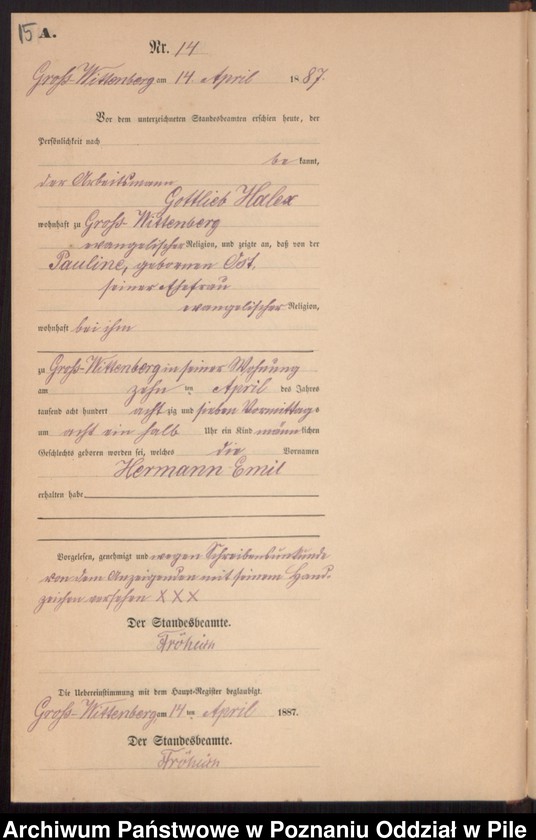 15 A.
Nr. 14
Groß-Wittenberg am 14. April 1887.
Vor dem unterzeichneten Standesbeamten erschien heute, der
Persönlichkeit nach
be kannt,
der Arbeitsmann
Gottlieb Halex
wohnhaft zu Groß-Wittenberg
evangelischer Religion, und zeigte an, daß von der
Pauline, gebornen Ost,
seiner Ehefrau
evangelischer Religion,
wohnhaft bei ihm
zu Groß-Wittenberg in seiner Wohnung
am zehn ten April des Jahres
tausend acht hundert acht zig und sieben Vormittags
um acht ein halb Uhr ein Kind männ lichen
Geschlechts geboren worden sei, welches die Vornamen
Hermann Emil
erhalten habe
Vorgelesen, genehmigt und wegen Schreibensunkunde
von dem Anzeigenden mit seinem Hand-
zeichen versehen XXX
Der Standesbeamte.
Die Uebereinstimmung mit dem Haupt-Register beglaubigt.
Groß-Wittenberg am 14 ten April 1887.
Der Standesbeamte.
Archiwum Państwowe w Poznaniu Oddział w Pile